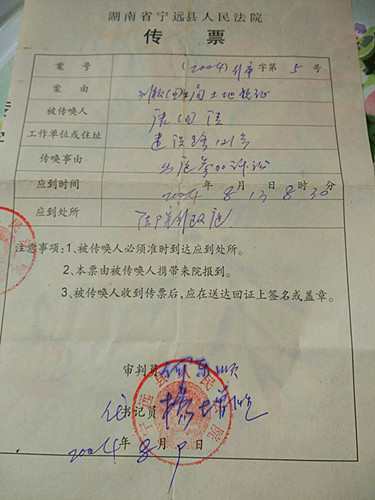 湖南省宁远县人民法院
传 票
案 号 (2004) 字第 5 号
案 由 国土局土地
被传唤人
工作单位或住址 建设路121号
传唤事由 出庭参加诉讼
应到时间 2004年8月13日8时30分
应到处所
注意事项:1、被传唤人必须准时到达应到处所。
2、本票由被传唤人携带来院报到。
3、被传唤人收到传票后,应在送达回证上签名或盖章。
审判员
书记员
2004年8月9日
宁远县人民法院